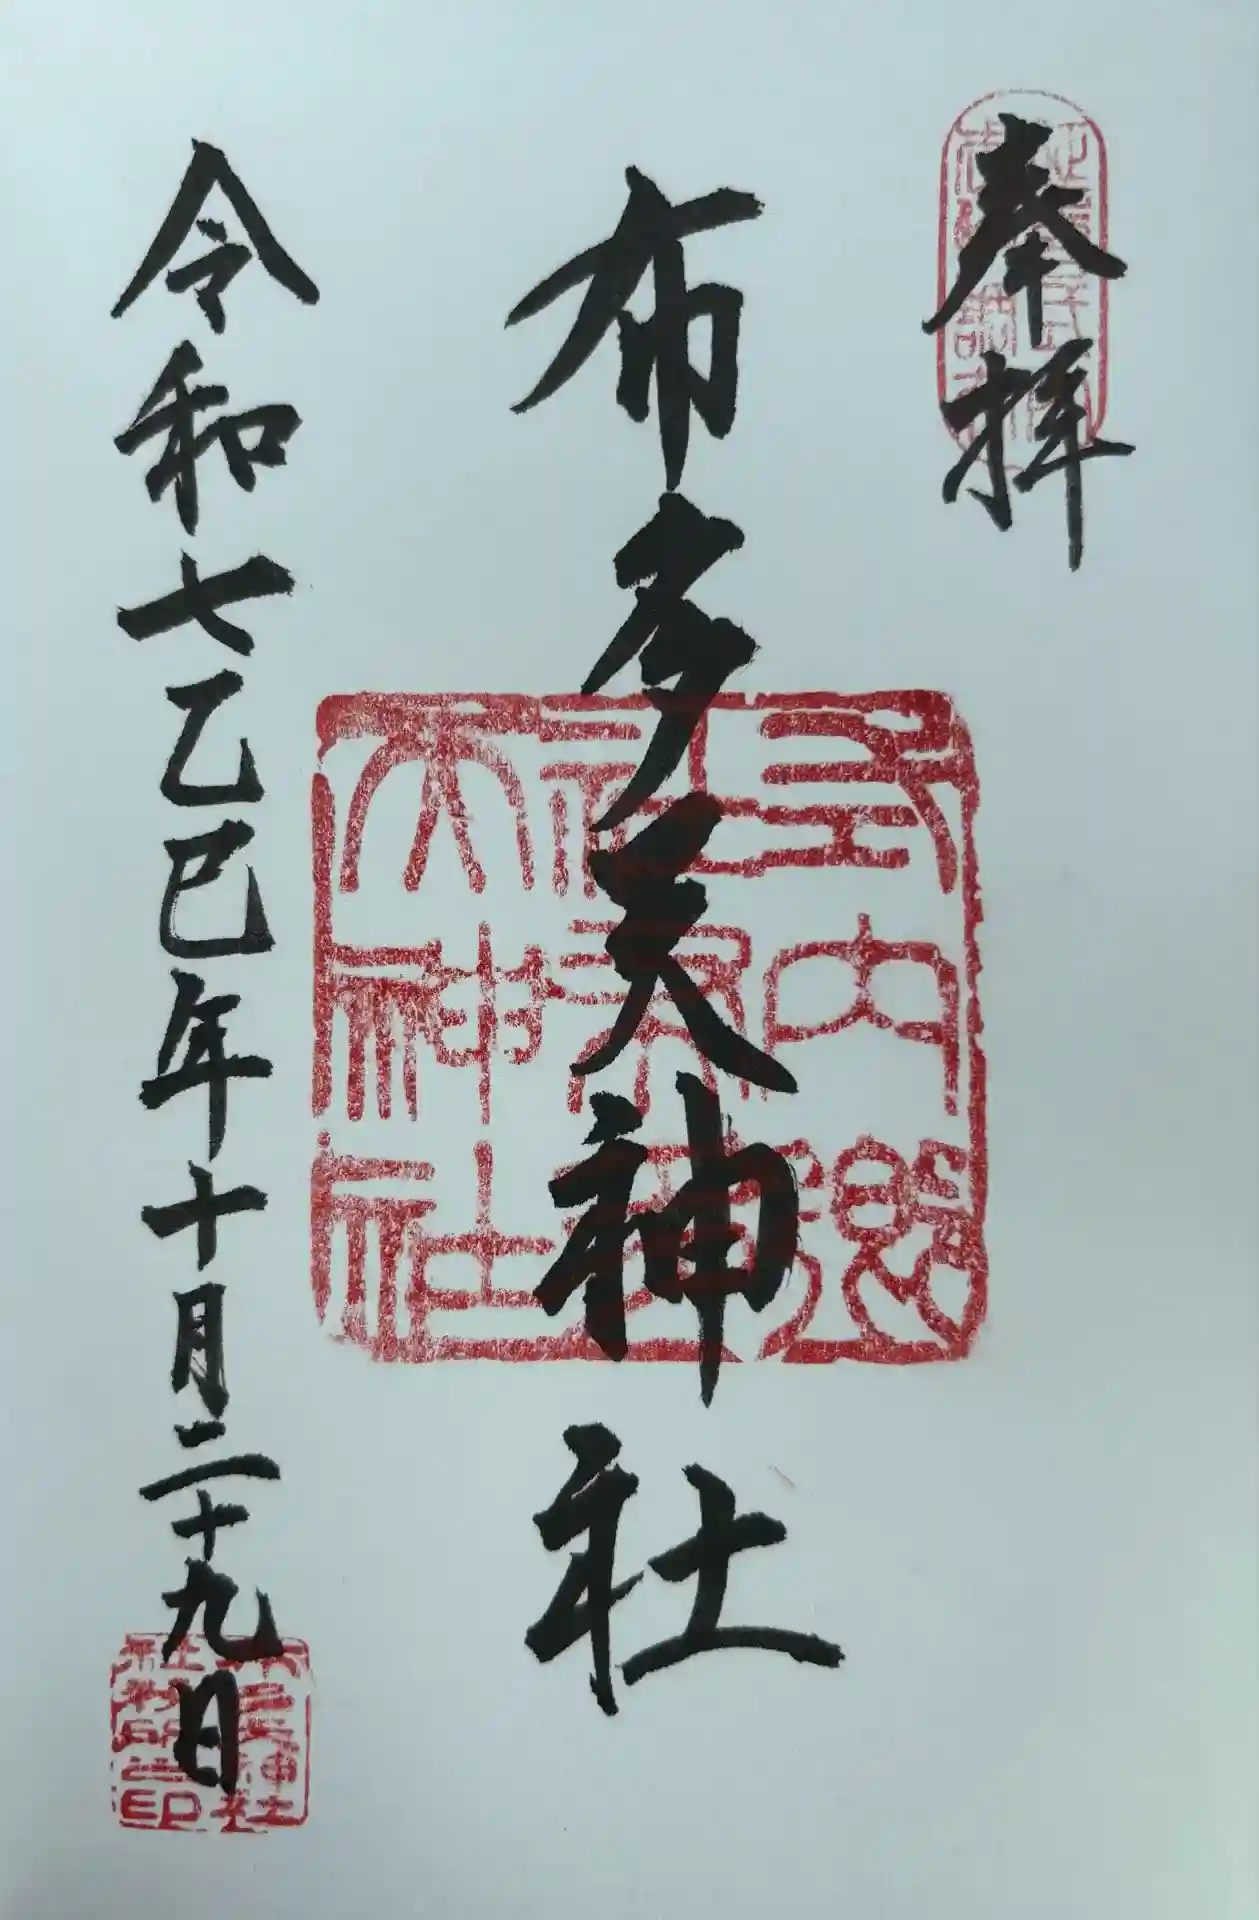 奉拝
布多天神社
式内郷
社布多
天神社
令和七乙巳年十月二十九日
布多天神社
社務所之印